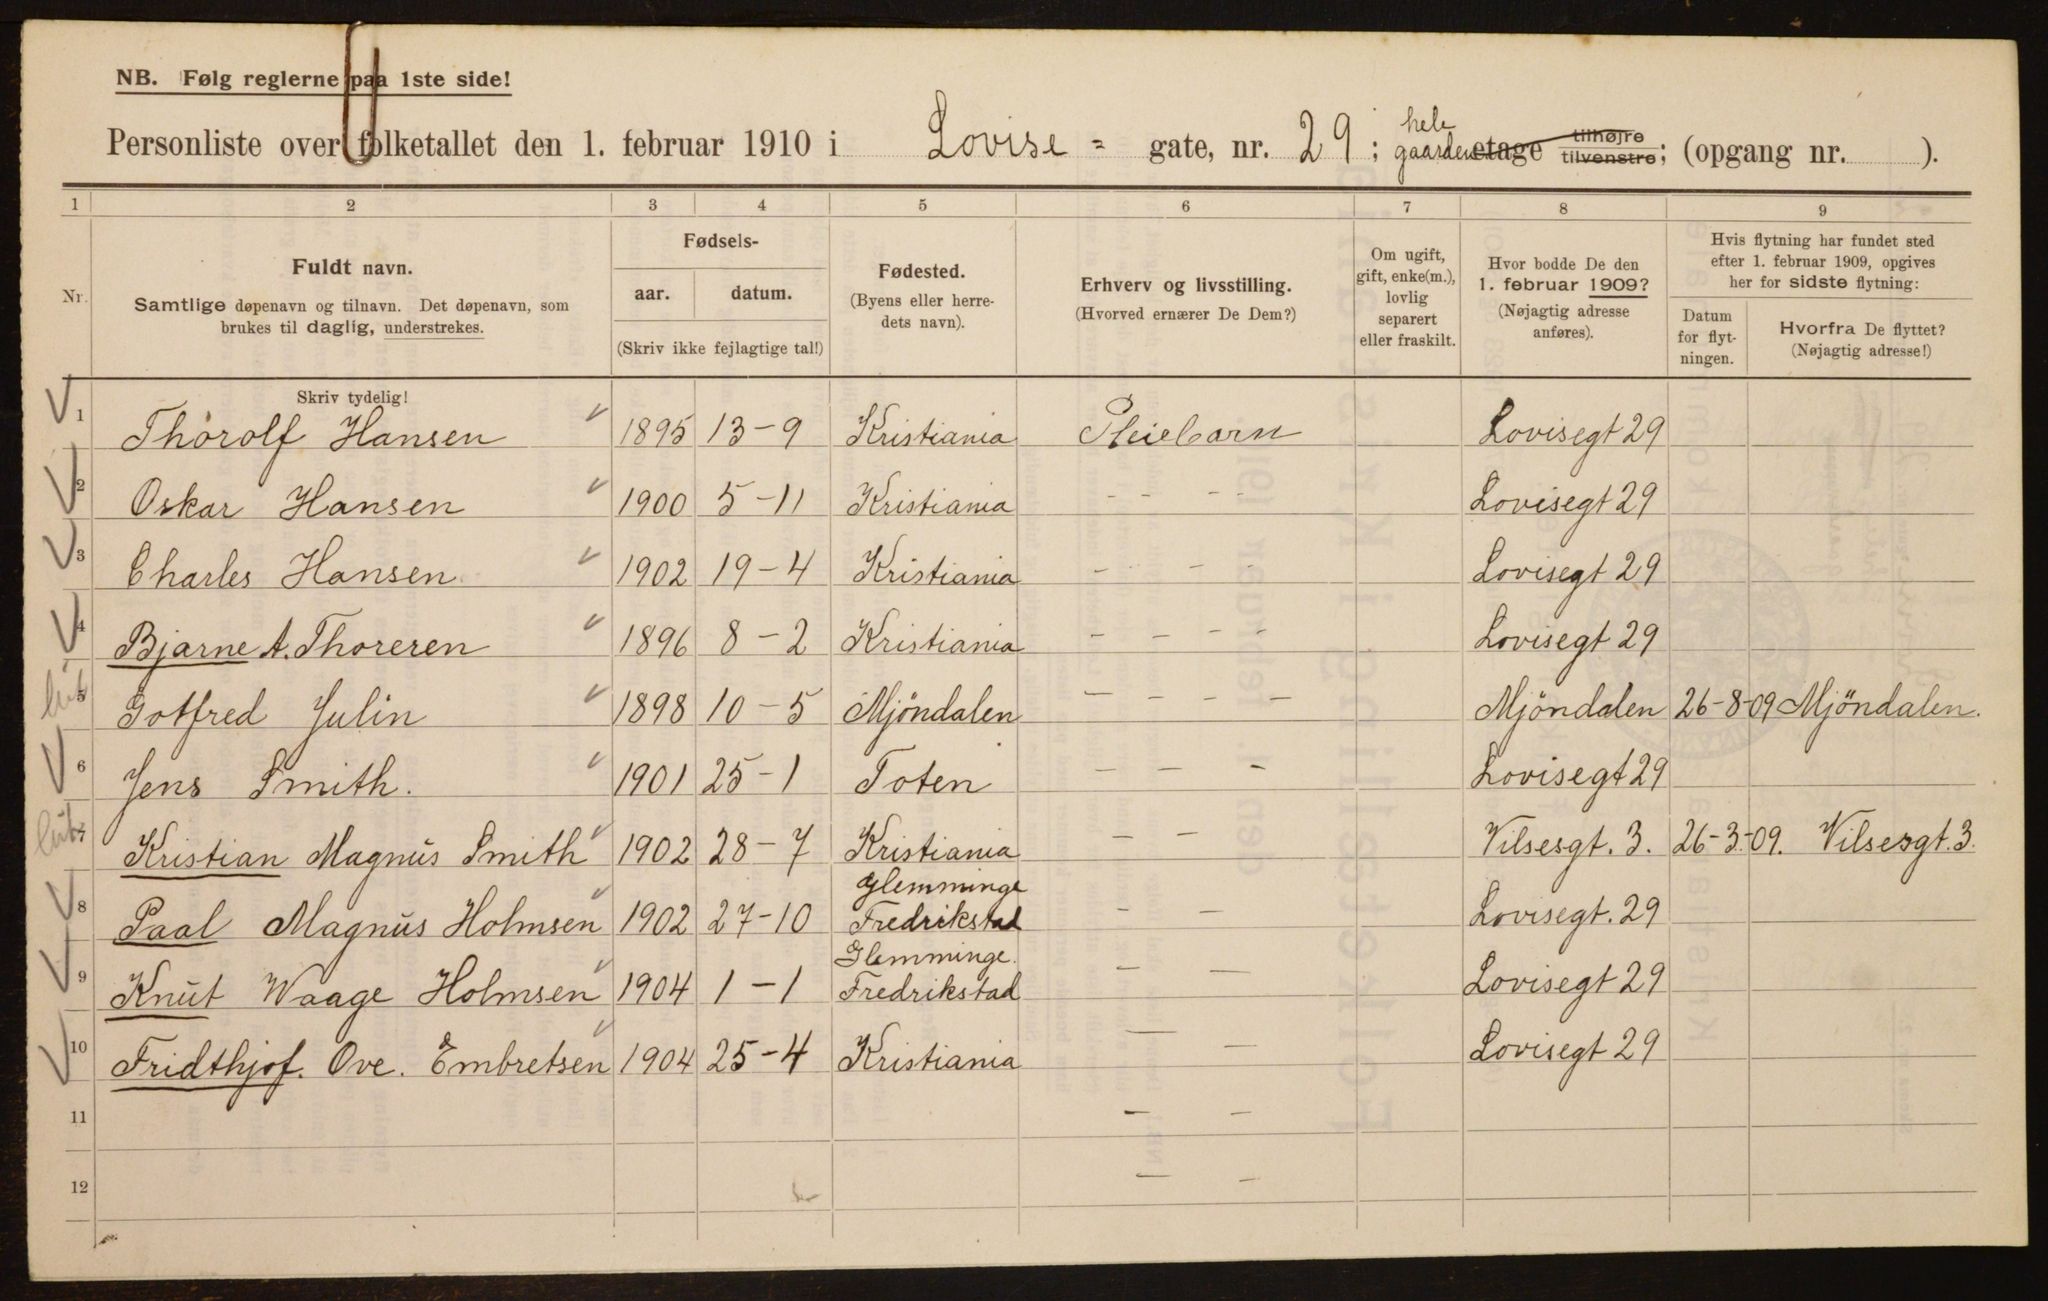 NB. Følg reglerne paa 1ste side!
Personliste over folketallet den 1. februar 1910 i Lovise = gate, nr. 29; hele gaarden etage tilhøjre tilvenstre; (opgang nr. ).
1 2 3 4 5 6 7 8 9
Nr.
Fuldt navn.
Samtlige døpenavn og tilnavn. Det døpenavn, som
brukes til daglig, understrekes.
Fødsels-
aar. datum.
(Skriv ikke fejlagtige tal!)
Fødested.
(Byens eller herre-
dets navn).
Erhverv og livsstilling.
(Hvorved ernærer De Dem?)
Om ugift,
gift, enke(m.),
lovlig
separert
eller fraskilt.
Hvor bodde De den
1. februar 1909?
(Nøjagtig adresse
anføres).
Hvis flytning har fundet sted
efter 1. februar 1909, opgives
her for sidste flytning:
Datum
for flyt-
ningen.
Hvorfra De flyttet?
(Nøjagtig adresse!)
Skriv tydelig!
1 Thorolf Hansen 1895 13-9 Kristiania Pleiebarn Lovisegt 29
2 Oskar Hansen 1900 5-11 Kristiania - - - - Lovisegt 29
3 Charles Hansen 1902 19-4 Kristiania - - - - Lovisegt 29
4 Bjarne A. Thoreren 1896 8-2 Kristiania - - - - Lovisegt 29
5 Gotfred Julin 1898 10-5 Mjöndalen - - - - Mjöndalen 26-8-09 Mjöndalen.
6 Jens Smith. 1901 25-1 Toten - - - Lovisegt 29
7 Kristian Magnus Smith 1902 28-7 Kristiania - - Vilsesgt. 3. 26-3-09. Vilsesgt. 3.
8 Paal Magnus Holmsen 1902 27-10 Glemminge Fredrikstad - - Lovisegt. 29
9 Knut Waage Holmsen 1904 1-1 Glemminge. Fredrikstad - - Lovisegt 29
10 Fridthjof. Ove. Embretsen 1904 25-4 Kristiania - - Lovisegt 29
11 - -
12 - -